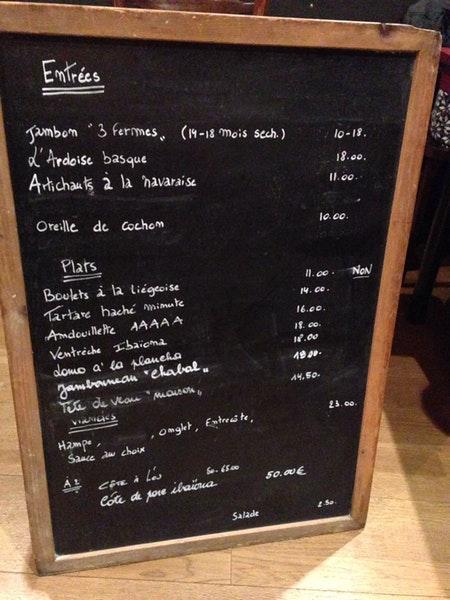 Entrées
Jambon "3 Fermes" (14-18 mois sech.) 10-18.
L'Ardoise basque 18.00.
Artichauts à la navaraise 11.00.
Oreille de cochon 10.00.
Plats
Boulets à la liégeoise 11.00. NON
Tartare haché minute 14.00.
Andouillette AAAAA 16.00.
Ventrèche Ibaïona 18.00.
domo a' la plancha 18.00.
Jambonneau "Chabal" 19.00.
Tête de veau "maison" 14.50.
Viandes 23.00.
Hampe, , Onglet, Entrecôte,
Sauce au choix
A 2 Côte à L'os 50-65.00
Côte de porc ibaïona 50.00€
Salade 2.50.